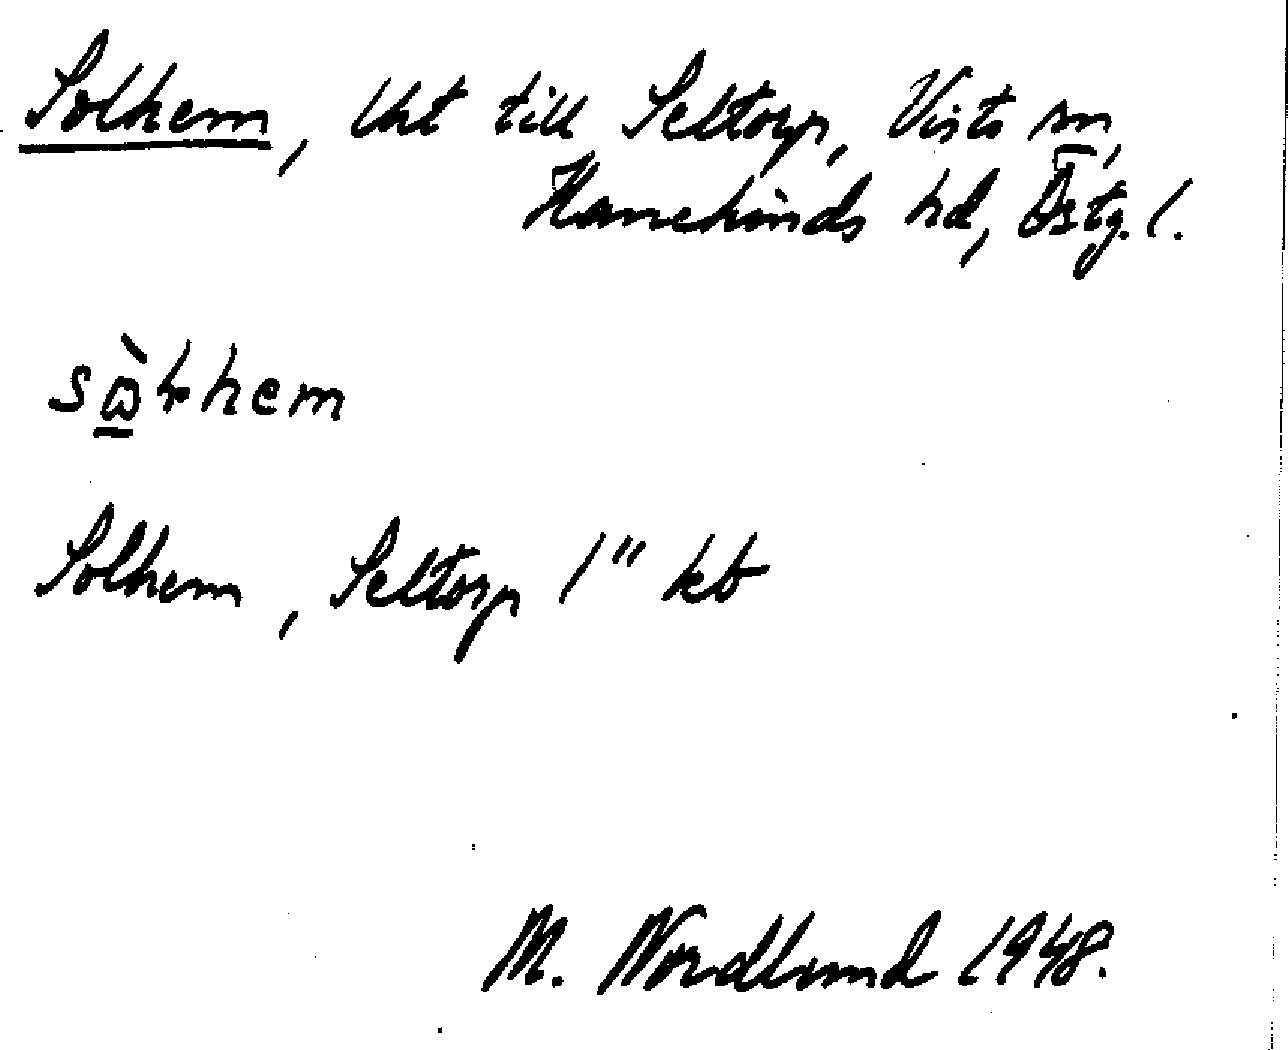 Solhem, lht till Seltorp, Vists sn,
Hanekinds hd, Östg. l.
Solhem, Seltorp 1" kb
M. Nordlund 1948.